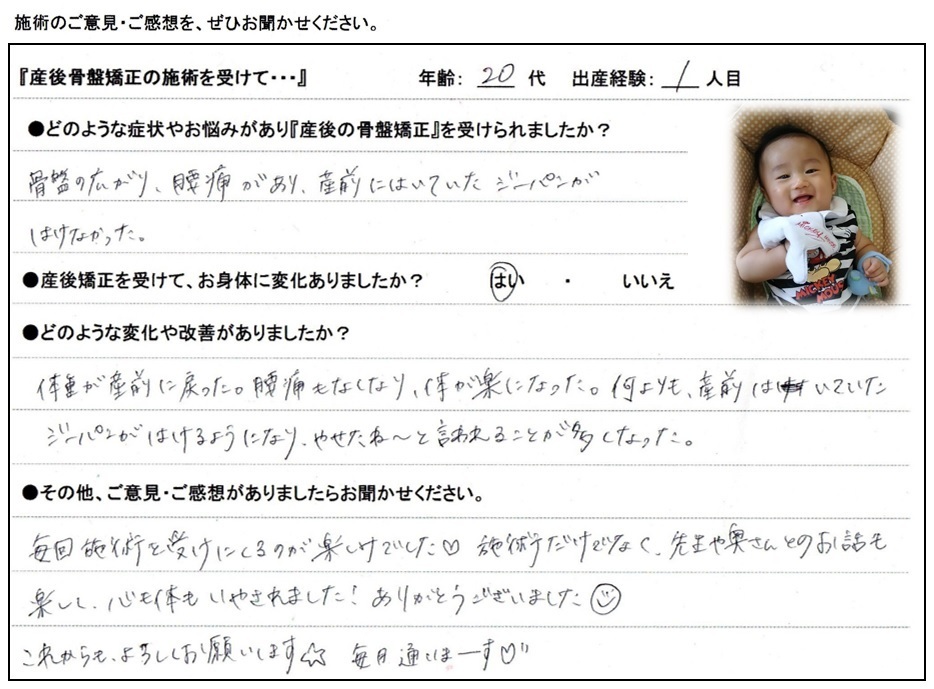 施術のご意見・ご感想を、ぜひお聞かせください。
『産後骨盤矯正の施術を受けて・・・』 年齢： 20 代 出産経験： 1 人目
●どのような症状やお悩みがあり『産後の骨盤矯正』を受けられましたか？
骨盤の広がり、腰痛があり、産前にはいていた ジーパンが
はけなかった。
●産後矯正を受けて、お身体に変化ありましたか？ はい ・ いいえ
●どのような変化や改善がありましたか？
体重が産前に戻った。腰痛もなくなり、体が楽になった。何よりも、産前はいていた
ジーパンがはけるようになり、やせたね～と言われることが多くなった。
●その他、ご意見・ご感想がありましたらお聞かせください。
毎回施術を受けにくるのが楽しみでした♡ 施術だけでなく、先生や奥さんとのお話も
楽しく、心も体もいやされました！ありがとうございました☺
これからも、よろしくお願いします☆ 毎月通いまーす♡
MICKEY
MOUSE